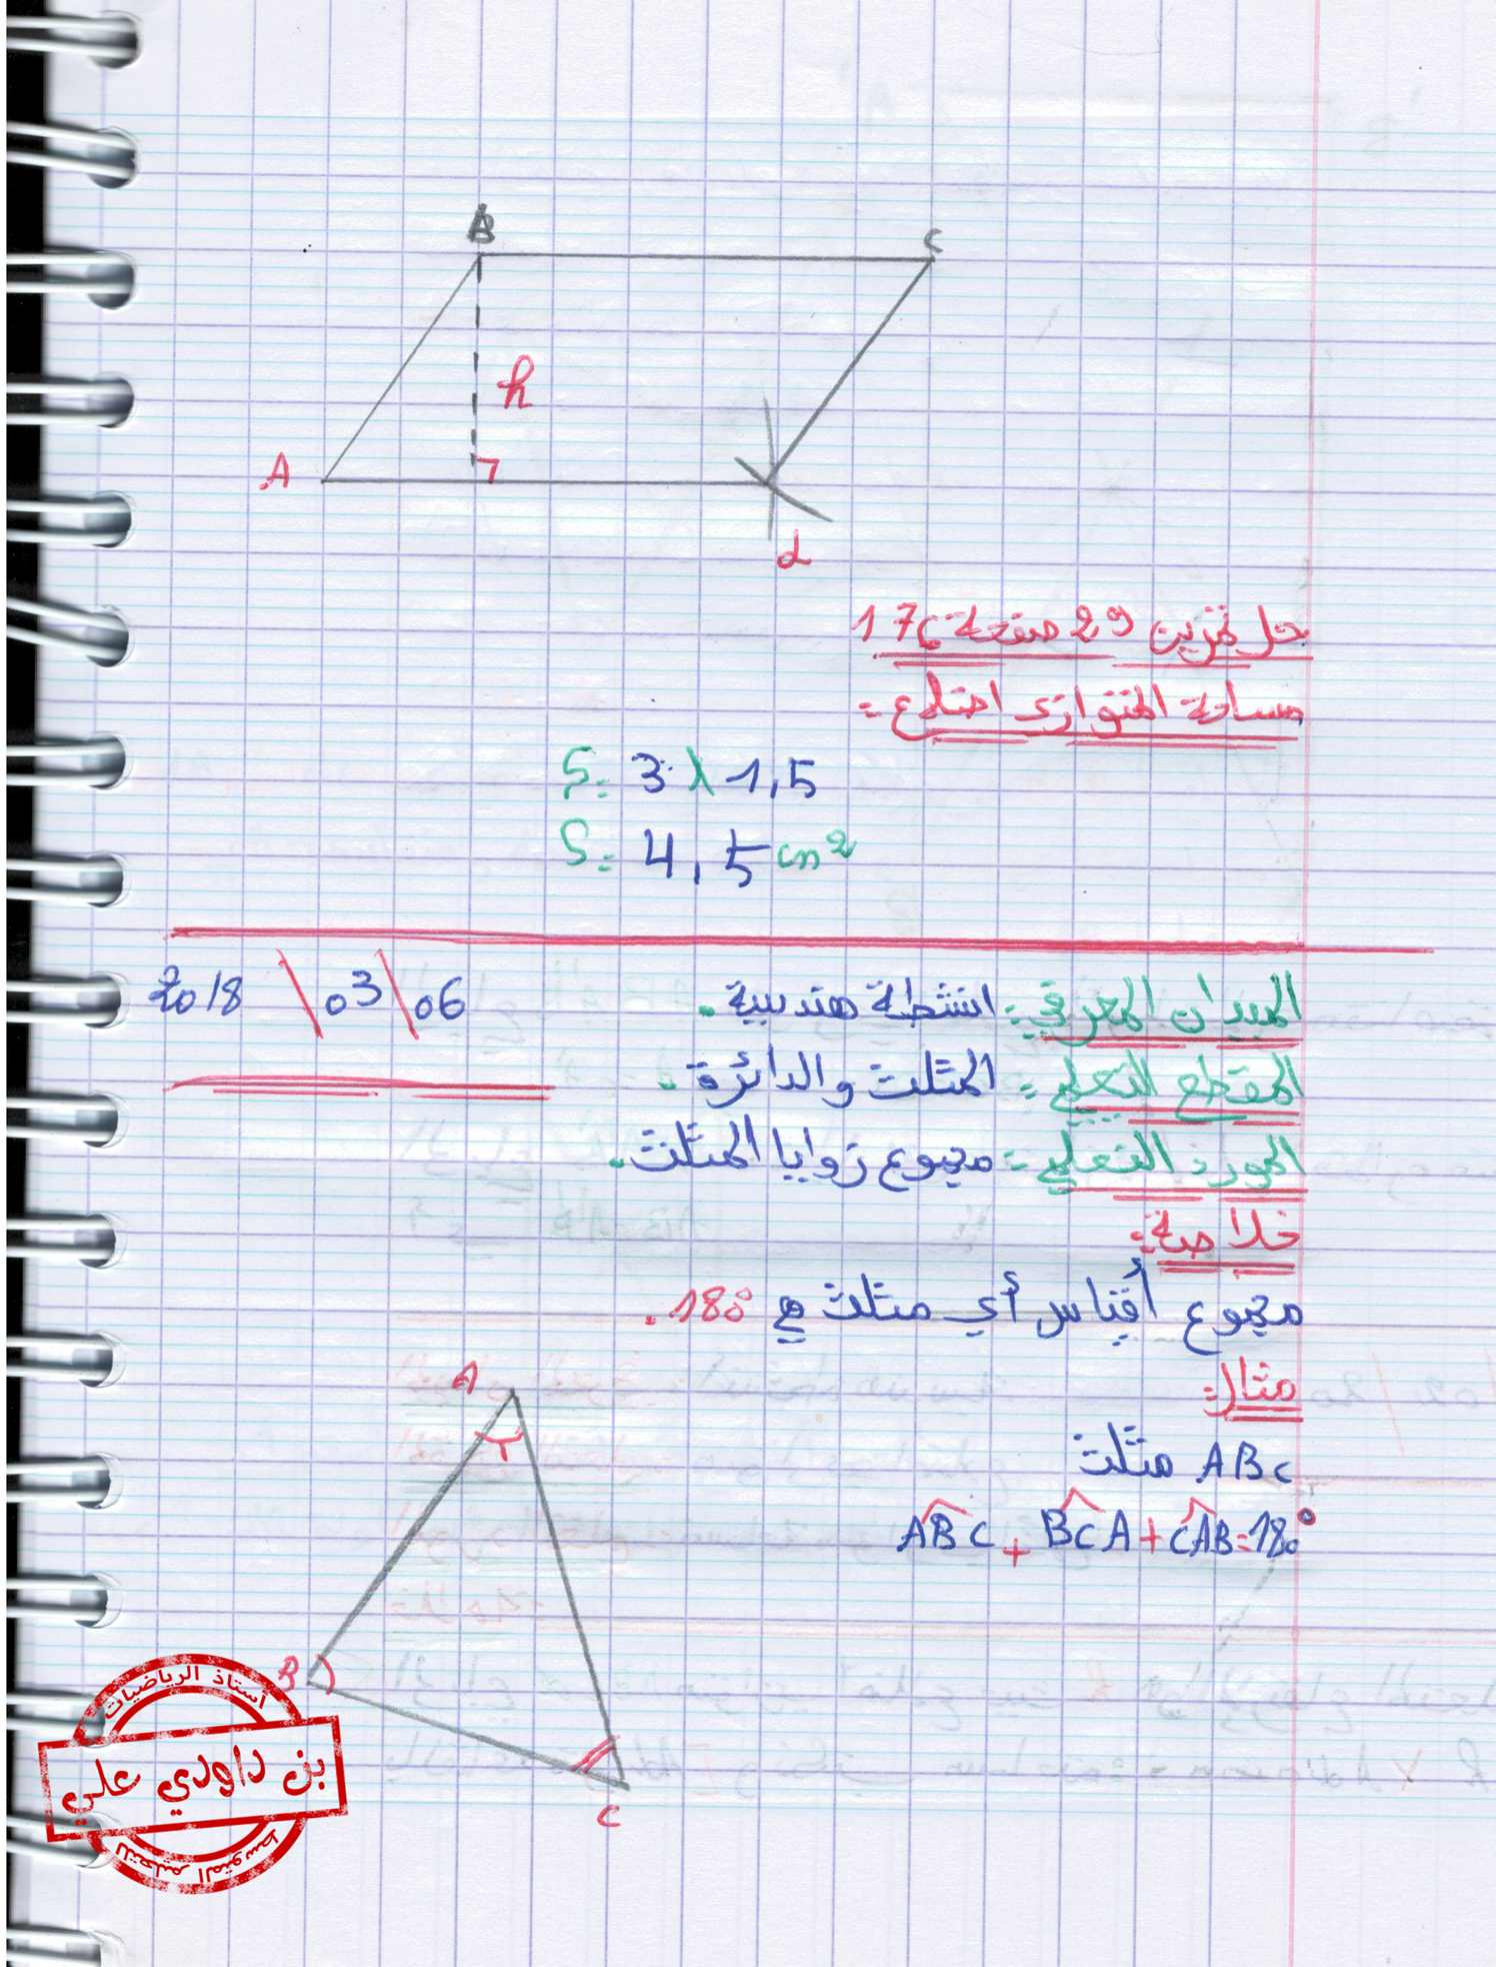 B
C
h
A
d
حل تمرين 29 صفحة 176
مساحة المتوازي اضلاع =
S = 3 x 1,5
S = 4,5 cm²
2018 \ 03 \ 06
الميدان المعرفي: انشطة هندسية.
المقطع التعلمي: المثلث والدائرة.
المورد التعلمي: مجموع زوايا المثلث.
خلاصة:
مجموع أقياس أي مثلث هي 180°.
مثال:
ABC مثلث
ABC + BCA + CAB = 180°
A
B
C
أستاذ الرياضيات
بن داودي علي
للتعليم المتوسط